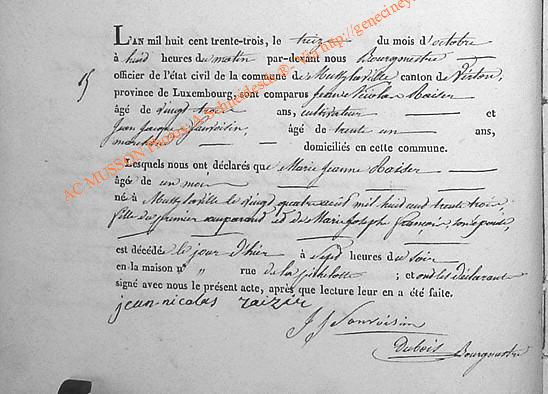 L'AN mil huit cent trente-trois, le treize du mois d'octobre
à huit heures du matin par-devant nous Bourgmestre
officier de l'état civil de la commune de Mussy la ville canton de Virton,
15 province de Luxembourg, sont comparus Jean Nicolas Raiser
âgé de vingt trois ans, cultivateur et
Jean Jacque Sauvoisin, âgé de trente un ans,
domiciliés en cette commune.
Lesquels nous ont déclarés que Marie Jeanne Raiser
âgée de un mois
né à Mussy la ville le vingt quatre août mil huit cent trente trois
fille du premier comparant et de Marie Joseph François son épouse,
est décédée le jour d'hier à sept heures du soir
en la maison n° " rue de la ; et ont les déclarants
signé avec nous le présent acte, après que lecture leur en a été faite.
jean-nicolas raizir
J J Sauvoisin
Dubois Bourgmestre
AC MUSSON Photos Archividesck®- via http://geneciney